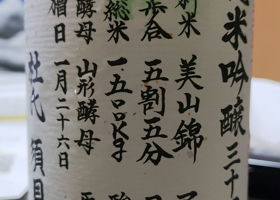 米吟醸三十
料米 美山錦
歩合 五割五分
総米 一五〇〇kg
酵母 山形酵母
槽日 一月二十六日
杜氏 須